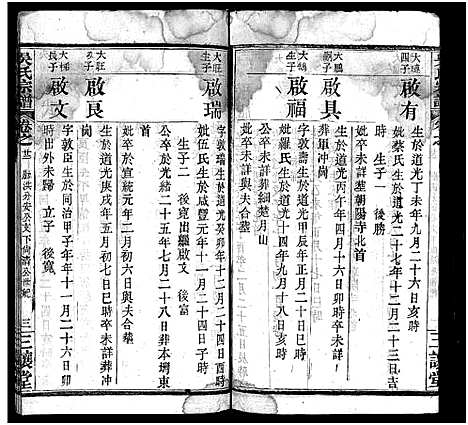 大㮣
四子
啟有
生於道光丁未年九月二十六日亥時
妣蔡氏生於道光二十七年十二月二十三日吉
時
生子一 後勝
妣卒未詳葬朝陽寺北首
大鵬
嗣子
啟具
生於道光丙午年四月十六日卯時卒未詳
葬軍冲崗
大鵬
生子
啟福
公生於道光甲辰年四月三十日亥時
妣羅氏生於道光十四年九月十八日亥時
公卒未詳葬細楚月山
妣卒未詳與夫合塟
大旺
生子
啟瑞
字敦瑞生於道光癸卯年十二月二十四日酉時
妣伍氏生於咸豐元年十一月二十四日子時
生子二 後寬出繼啟文 後富
公卒於光緒二十五年七月二十八日葬本塆東
首
妣卒於宣統元年二月初六日與夫合塟
大旺
次子
啟良
生於道光庚戌年五月初七日巳時卒未詳葬冲
崗
大㮣
長子
啟文
字敦臣生於同治甲子年十一月二十六日卯
時出外未歸 立子 後寬
吳氏宗譜
三
三讓堂
三讓堂